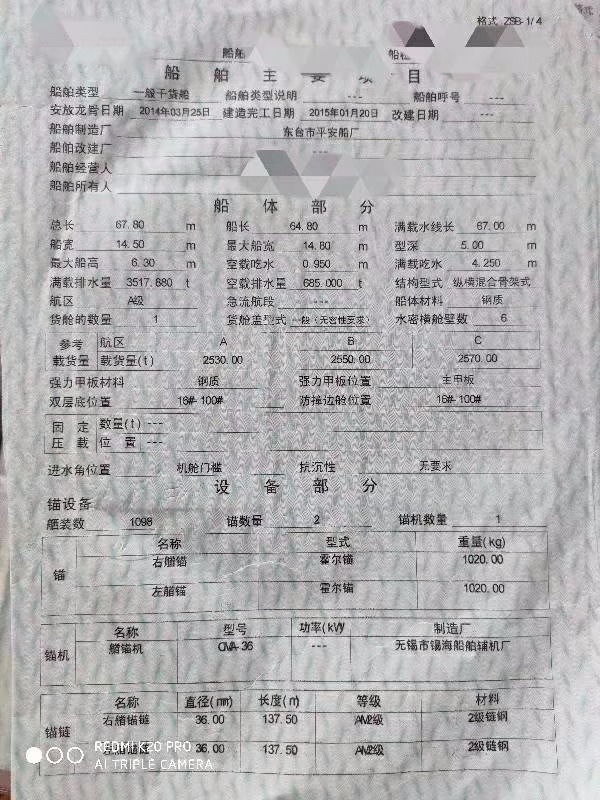 格式 ZSB-1/4
船舶
船舶主要项目
船舶类型 一般干货船 船舶类型说明 --- 船舶呼号 ---
安放龙骨日期 2014年03月25日 建造完工日期 2015年01月20日 改建日期 ---
船舶制造厂 东台市平安船厂
船舶改建厂 ---
船舶经营人
船舶所有人
船体部分
总长 67.80 m 船长 64.80 m 满载水线长 67.00 m
船宽 14.50 m 最大船宽 14.80 m 型深 5.00 m
最大船高 6.30 m 空载吃水 0.950 m 满载吃水 4.250 m
满载排水量 3517.680 t 空载排水量 685.000 t 结构型式 纵横混合骨架式
航区 A级 急流航段 --- 船体材料 钢质
货舱的数量 1 货舱盖型式 一般（无密性要求） 水密横舱壁数 6
参考 航区 A B C
载货量 载货量(t) 2530.00 2550.00 2570.00
强力甲板材料 钢质 强力甲板位置 主甲板
双层底位置 16#-100# 防撞边舱位置 16#-100#
固定 数量(t) ---
压载 位置 ---
进水角位置 机舱门槛 抗沉性 无要求
设备部分
锚设备
舾装数 1098 锚数量 2 锚机数量 1
名称 型式 重量(kg)
锚 右艏锚 霍尔锚 1020.00
左艏锚 霍尔锚 1020.00
名称 型号 功率(kW) 制造厂
锚机 艏锚机 --- 无锡市锡海船舶辅机厂
名称 直径(mm) 长度(m) 等级 材料
锚链 右艏锚链 36.00 137.50 AM2级 2级链钢
36.00 137.50 AM2级 2级链钢
REDMI K20 PRO
AI TRIPLE CAMERA